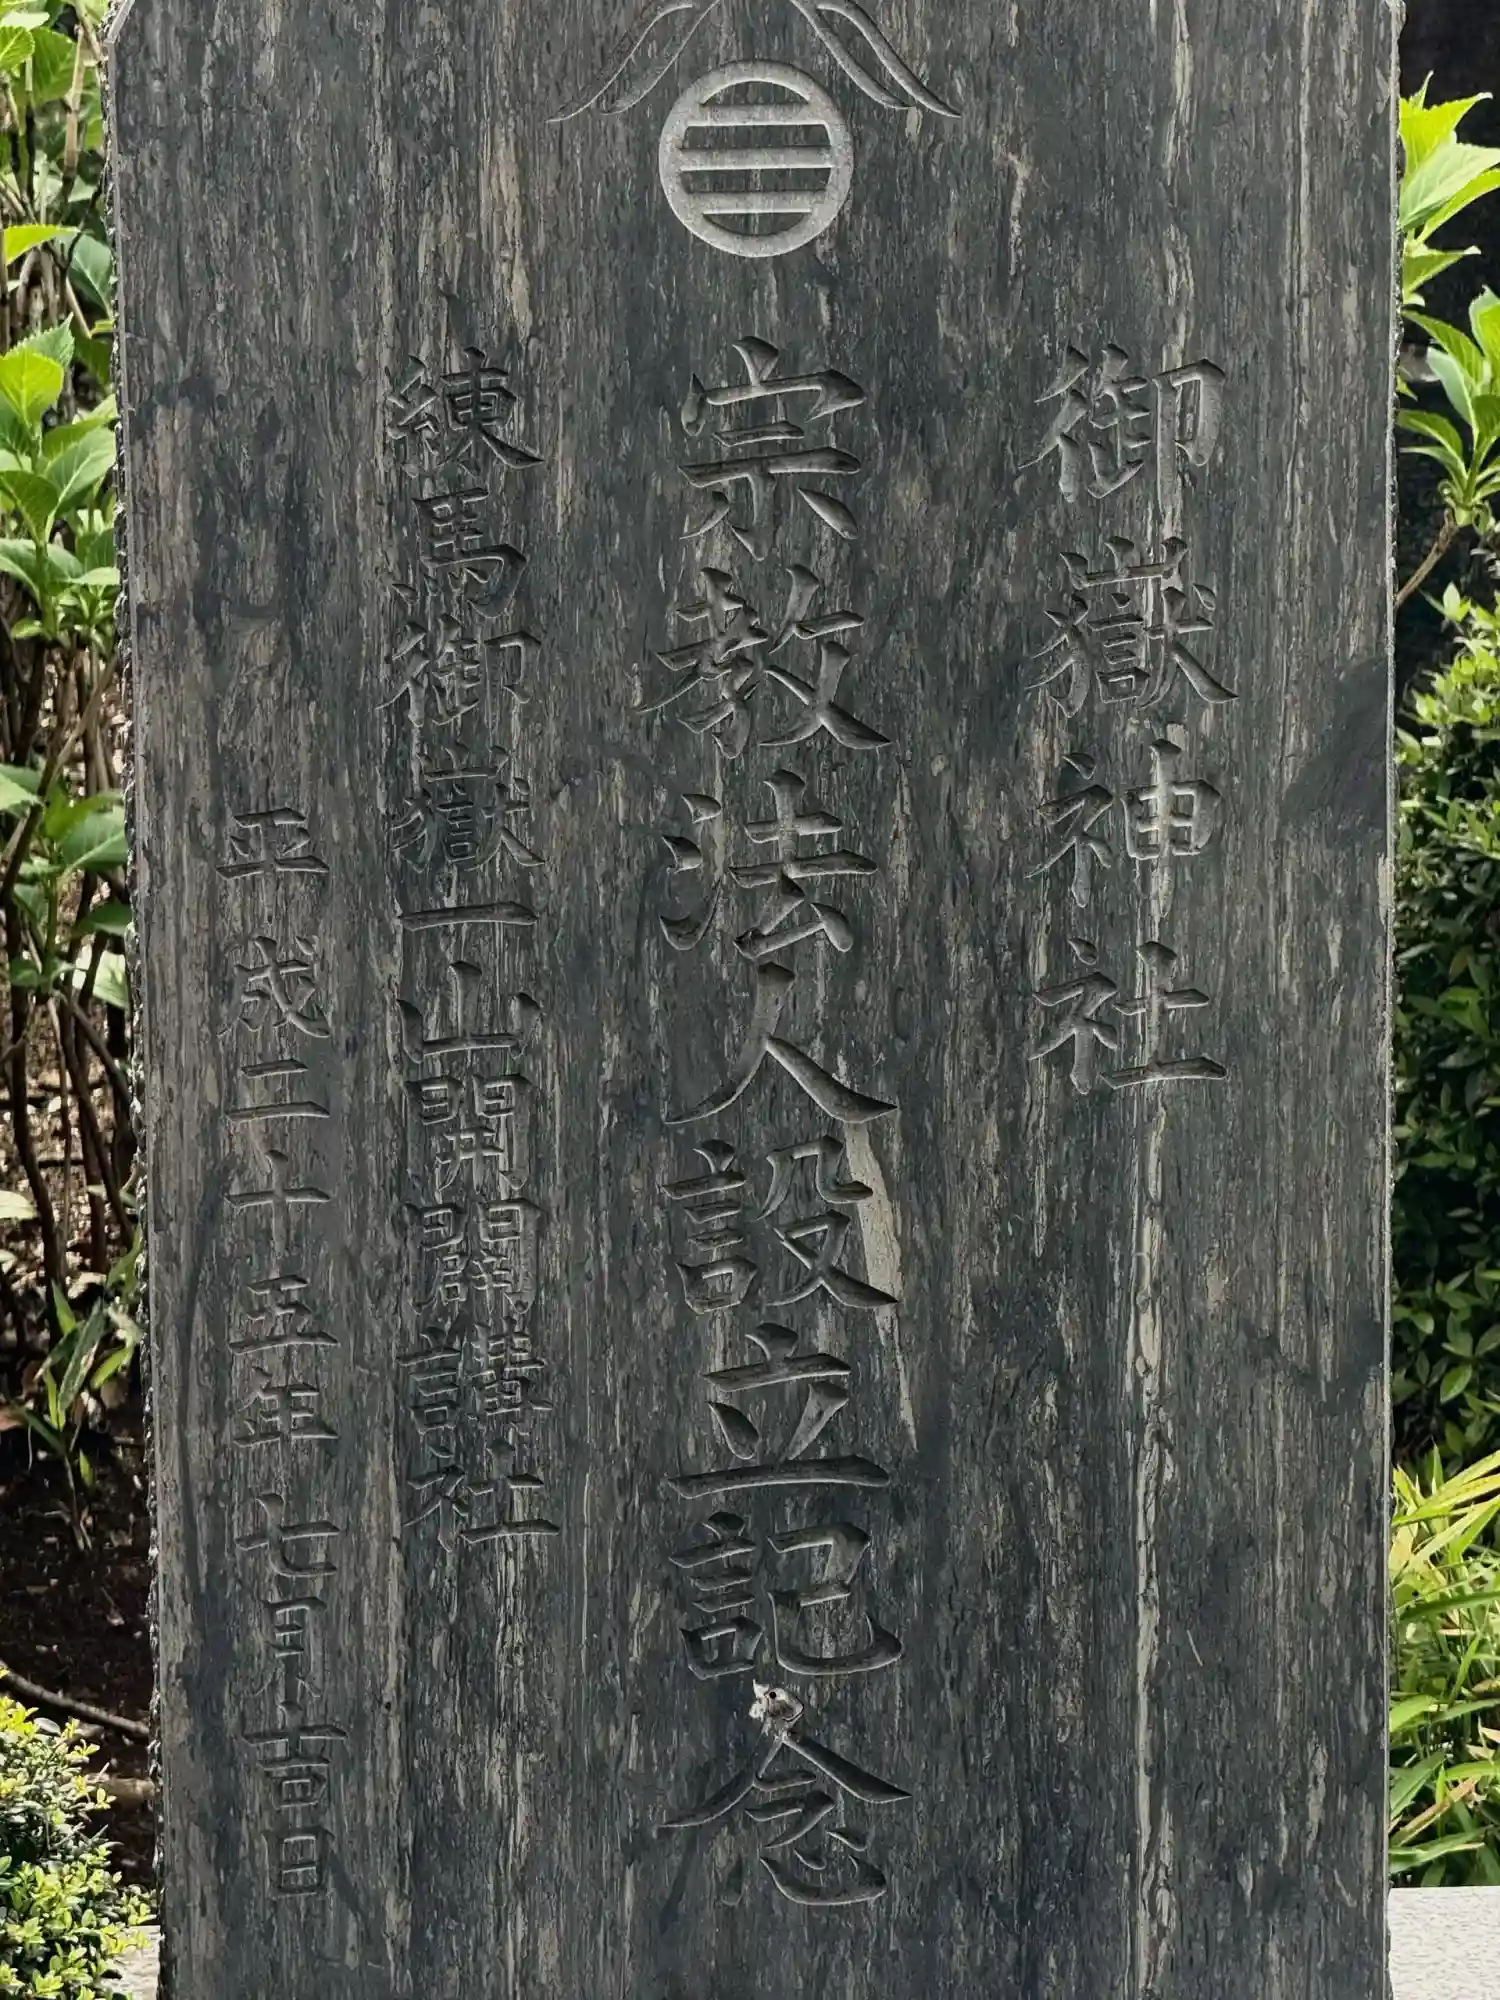 御嶽神社
宗教法人設立記念
練馬御嶽一山開闢講社
平成二十五年七月吉日